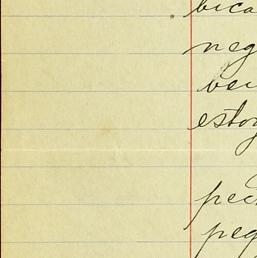 bica
neg
ven
estoy
peci
peg